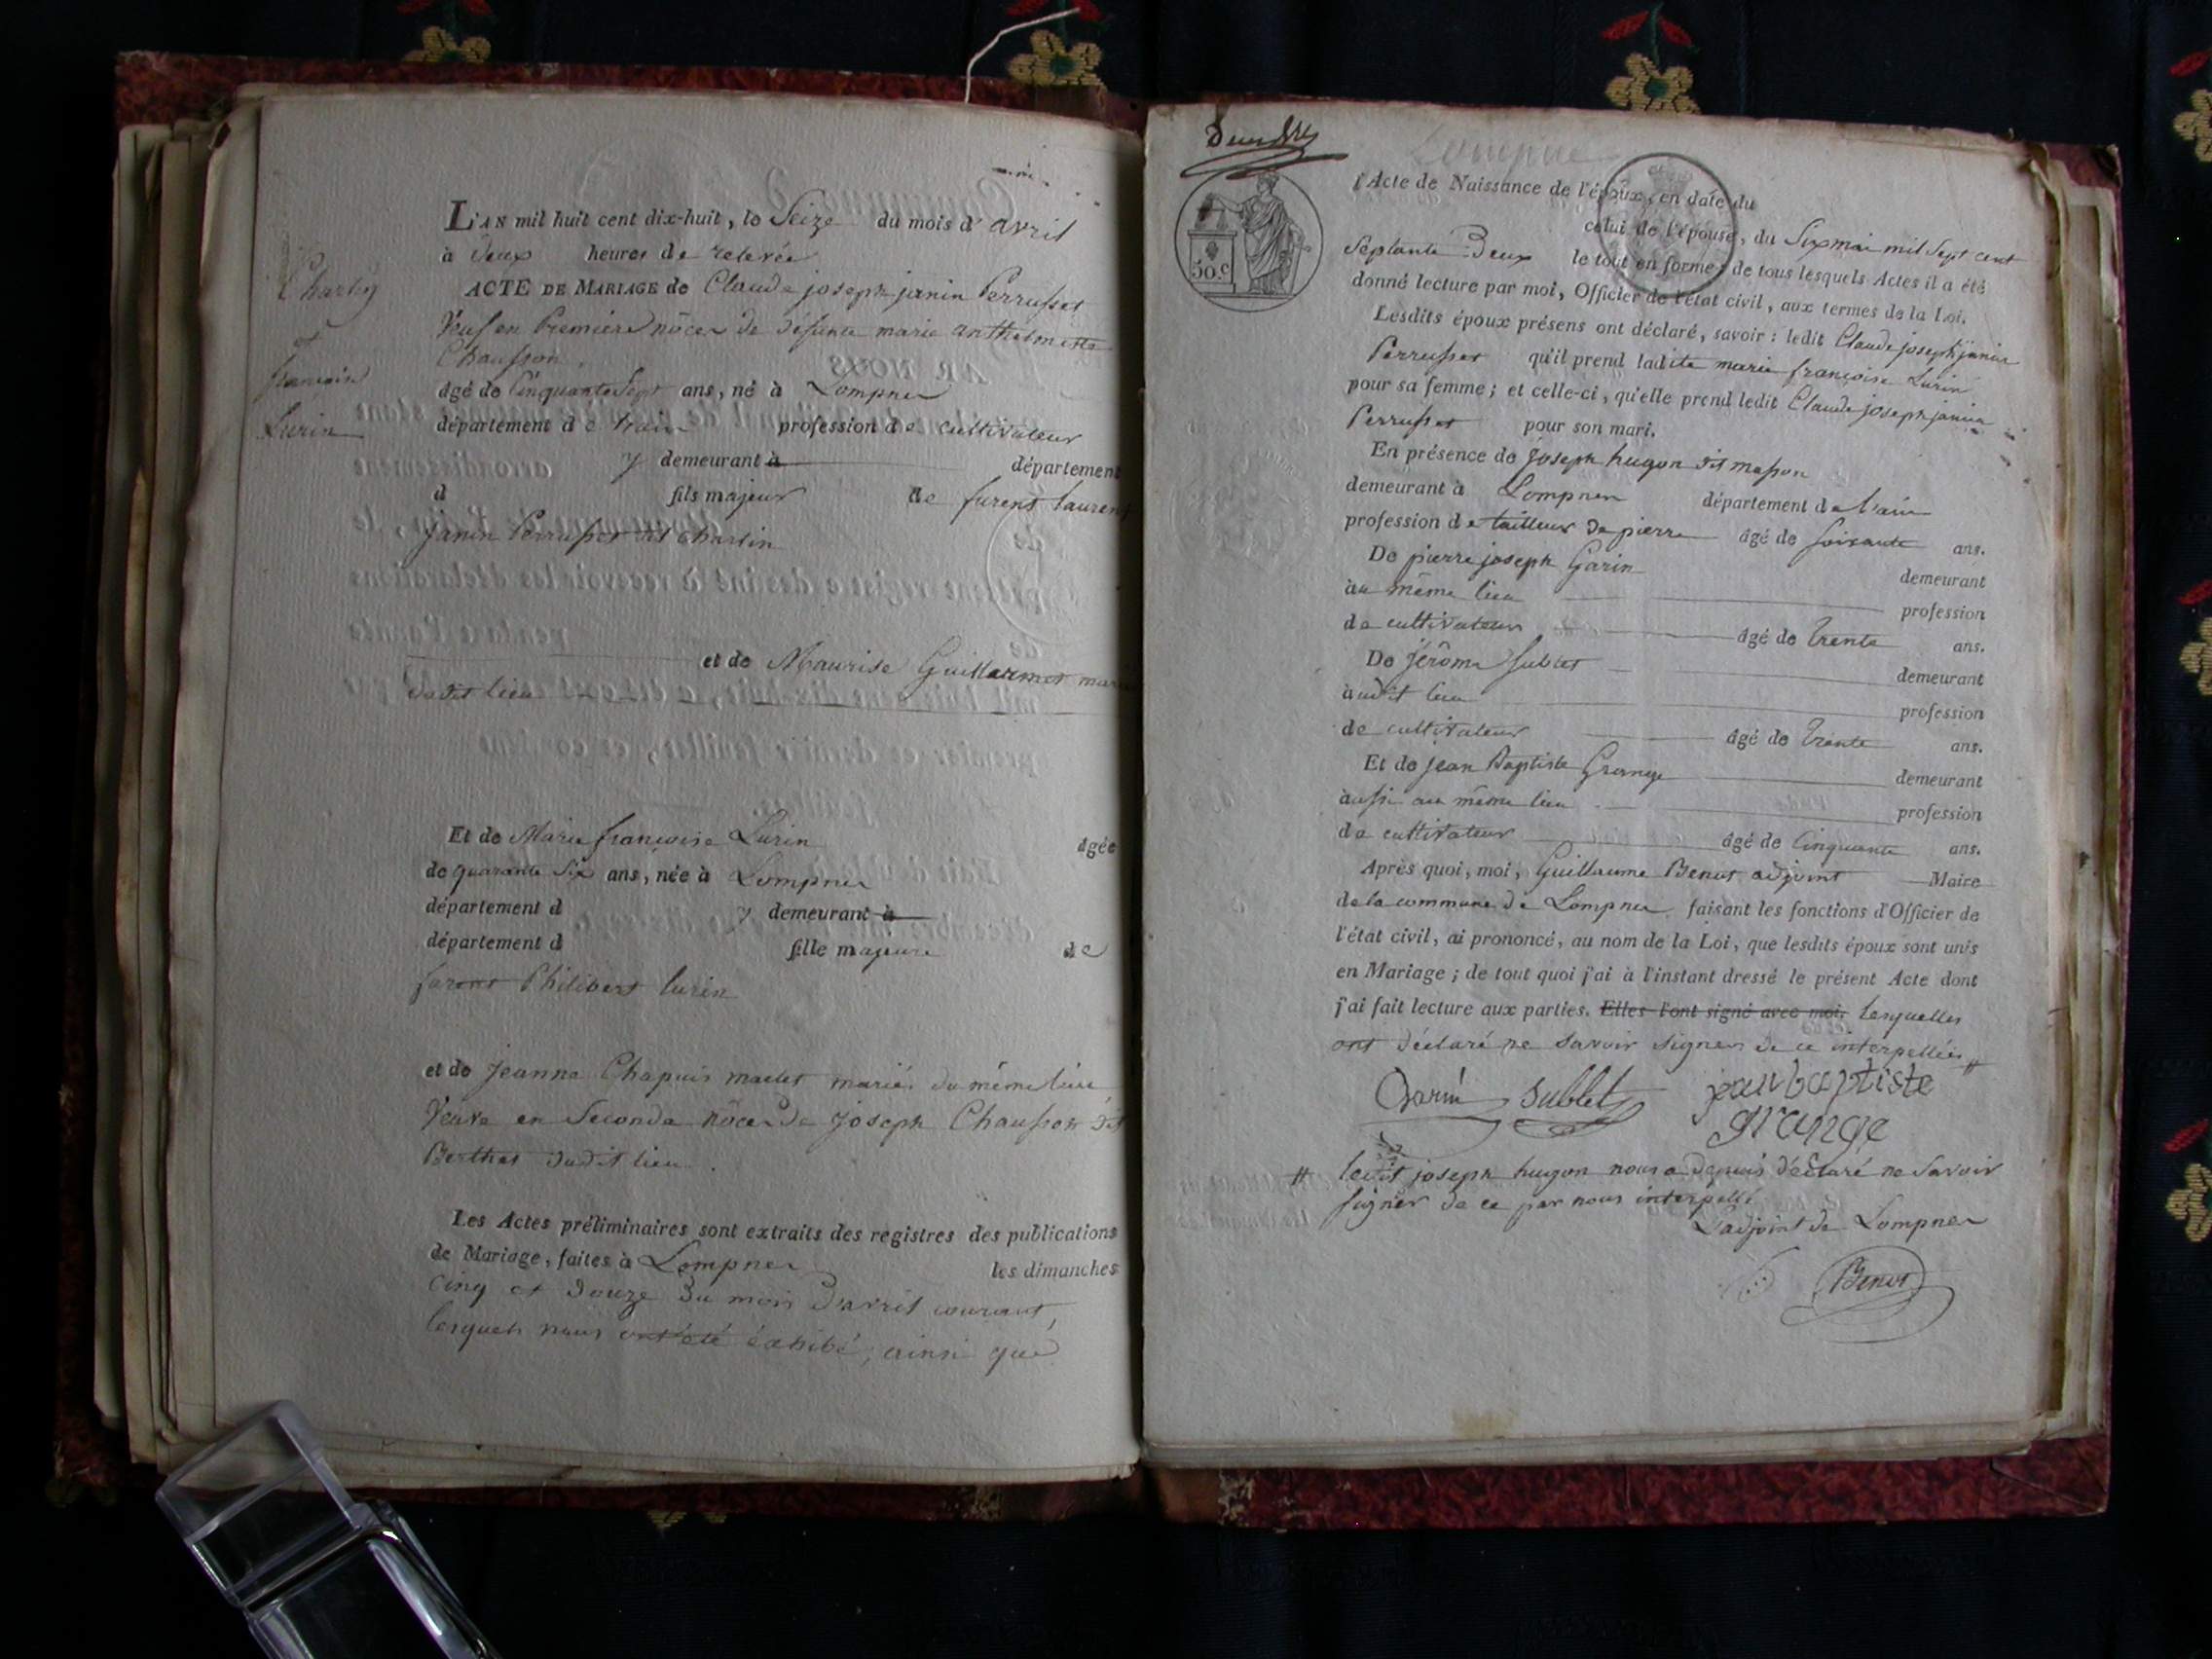 L'AN mil huit cent dix-huit, le Seize du mois d'avril
à Deux heures de relevée
ACTE DE MARIAGE de Claude joseph janin Perrusset
Veuf en Premiere nôce de défunte marie anthelmette
Chausson
âgé de Cinquante Sept ans, né à Lompnes
département de l'ain profession de cultivateur
y demeurant à département
d fils majeur de furent laurent
Janin Perrusset dit Charlin
et de Maurise Guillermet mariés
dudit lieu
Et de Marie françoise Lurin âgée
de quarante Six ans, née à Lompnes
département d y demeurant à
département d fille majeure de
furent Philibert lurin
et de Jeanne Chapuis maclet mariés du même lieu
Veuve en Seconde nôce de Joseph Chausson dit
Berthet dudit lieu.
Les Actes préliminaires sont extraits des registres des publications
de Mariage, faites à Lompnes les dimanches
cinq et Douze du mois D'avril courant,
lesquels nous ont été éxhibé, ainsi que
françoise
Lurin
Lompne
l'Acte de Naissance de l'époux, en date du
celui de l'épouse, du Six mai mil Sept cent
Septante Deux le tout en forme; de tous lesquels Actes il a été
donné lecture par moi, Officier de l'état civil, aux termes de la Loi.
50.c
Lesdits époux présens ont déclaré, savoir : ledit Claude joseph janin
Perrusset qu'il prend ladite marie françoise Lurin
pour sa femme; et celle-ci, qu'elle prend ledit Claude joseph janin
Perrusset pour son mari.
En présence de joseph hugon dit masson
demeurant à Lompnes département de l'ain
profession de tailleur de pierre âgé de soixante ans.
De pierre joseph Garin demeurant
au même lieu profession
de cultivateur âgé de Trente ans.
De Jérôme Sublet demeurant
audit lieu profession
de cultivateur âgé de Trente ans.
Et de jean Baptiste Grange demeurant
aussi au même lieu profession
de cultivateur âgé de Cinquante ans.
Après quoi, moi, Guillaume Benot adjoint Maire
de la commune de Lompnes faisant les fonctions d'Officier de
l'état civil, ai prononcé, au nom de la Loi, que lesdits époux sont unis
en Mariage; de tout quoi j'ai à l'instant dressé le présent Acte dont
j'ai fait lecture aux parties. Elles l'ont signé avec moi. lesquelles
ont déclaré ne savoir signer de ce interpellées //
Garin Sublet jean baptiste
grange
// ledit joseph hugon nous a depuis déclaré ne Savoir
signer de ce par nous interpellé
L'adjoint de Lompnes
Benot